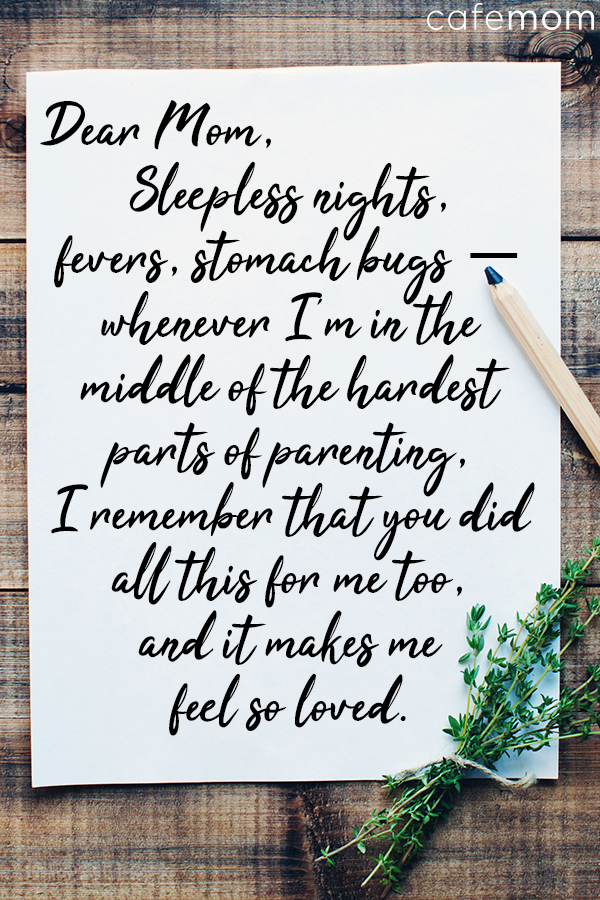 cafemom
Dear Mom,
Sleepless nights,
fevers, stomach bugs —
whenever I'm in the
middle of the hardest
parts of parenting,
I remember that you did
all this for me too,
and it makes me
feel so loved.